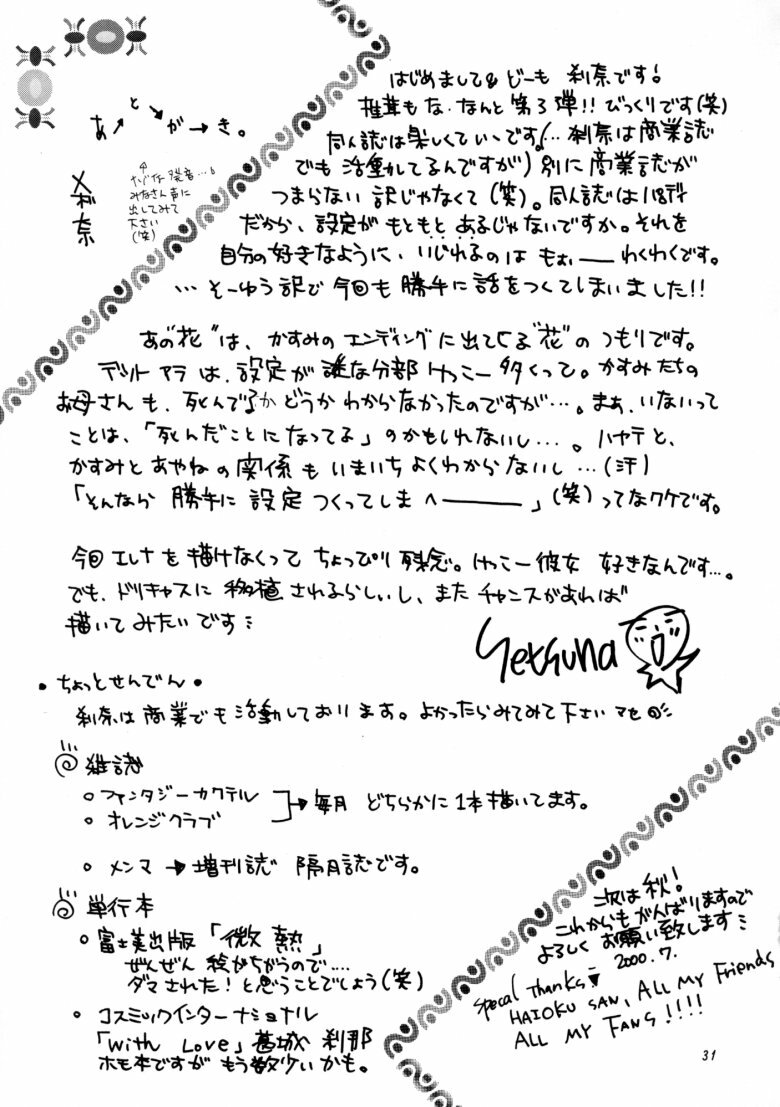 あとがき。
刹奈
↑
みなさん声に
出してみて
下さい
(笑)
はじめまして&どーも 刹奈です!
なんと第3弾!!びっくりです(笑)
同人誌は楽しくていいです。(… 刹奈は商業誌
でも活動してるんですが)別に商業誌が
つまらない訳じゃなくて(笑)。同人誌はパロディ
だから、設定がもともとあるじゃないですか。それを
自分の好きなように、いじれるのはもぉーわくわくです。
…そーゆう訳で今回も勝手に話をつくてしまいました!!
あの"花"は、かすみのエンディングに出てくる"花"のつもりです。
デットアラは、設定が謎な分部けっこー多くって。かすみたちの
お母さんも、死んでるかどうかわからなかったのですが…。まぁ、いないって
ことは、「死んだことになってる」のかもしれないし…。ハヤテと、
かすみとあやねの関係もいまいちよくわからないし…(汗)
「そんなら勝手に設定つくってしまへー」(笑)ってなワケです。
今回エレナを描けなくってちょっぴり残念。けっこー彼女好きなんです…。
でも、ドリキャスに移植されるらしいし、またチャンスがあれば
描いてみたいです
Setsuna
・ちょっとせんでん・
刹奈は商業でも活動しております。よかったらみてみて下さいマセ
雑誌
○ファンタジーカクテル
○オレンジクラブ
→毎月 どちらかに1本描いてます。
○メンマ→増刊誌 隔月誌です。
単行本
○富士美出版「微熱」
ぜんぜん絵がちがうので…
ダマされた!と思うことでしょう(笑)
○コスミックインターナショナル
「With Love」葛城 刹那
ホモ本ですがもう数少いかも。
次は秋!
これからもがんばりますので
よろしくお願い致します
2000.7.
Specal Thanks
HAIOKU SAN, ALL MY Friends
ALL MY FANS!!!!
31